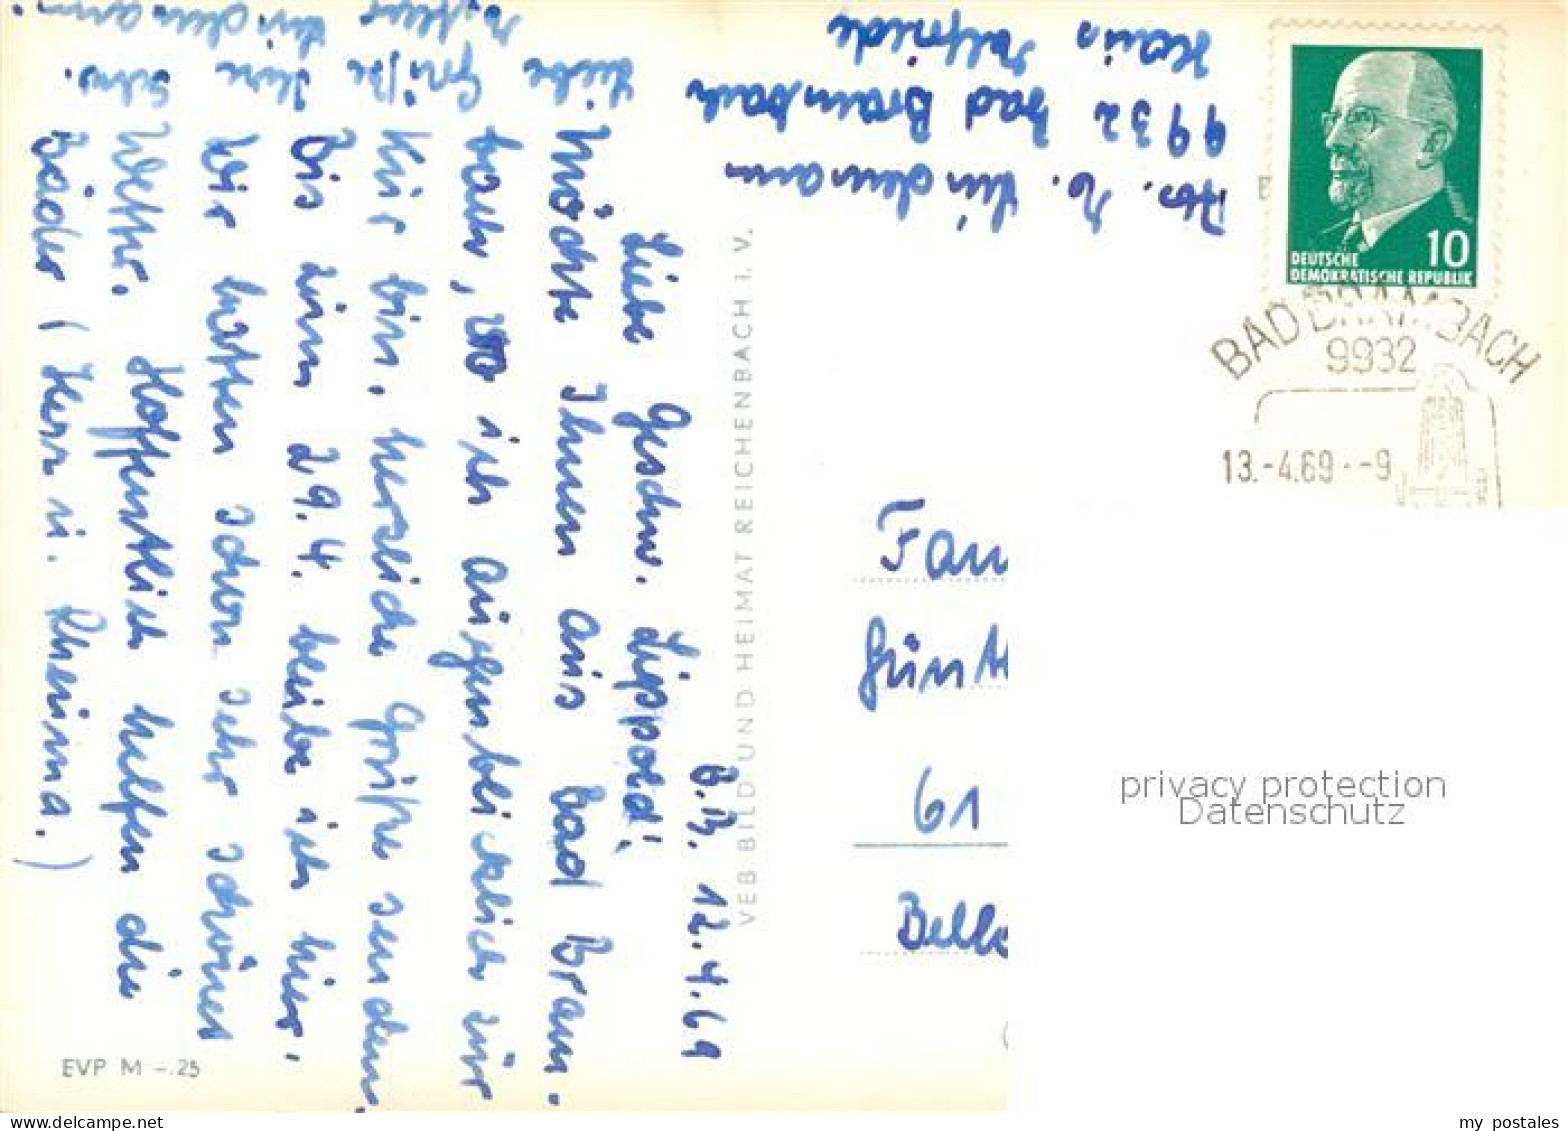 B.B. 12.4.69
Liebe Geschw. Lippold!
Möchte Ihnen aus Bad Bram-
bach, wo ich augenblicklich zur
Kur bin, herzliche Grüße senden.
Bis zum 29.4. bleibe ich hier.
Wir hatten schon sehr schönes
Wetter. Hoffentlich helfen die
Bäder (Herz u. Rheuma.)
Liebe Grüße Ihre Schw.
Lindemann.
Abs. M. Lindemann
9932 Bad Brambach
Haus
DEUTSCHE
DEMOKRATISCHE REPUBLIK
10
BAD BRAMBACH
9932
13.-4.69.--9
Fam
Günt
61
VEB BILD UND HEIMAT REICHENBACH I. V.
EVP M -.25
privacy protection
Datenschutz
my postales